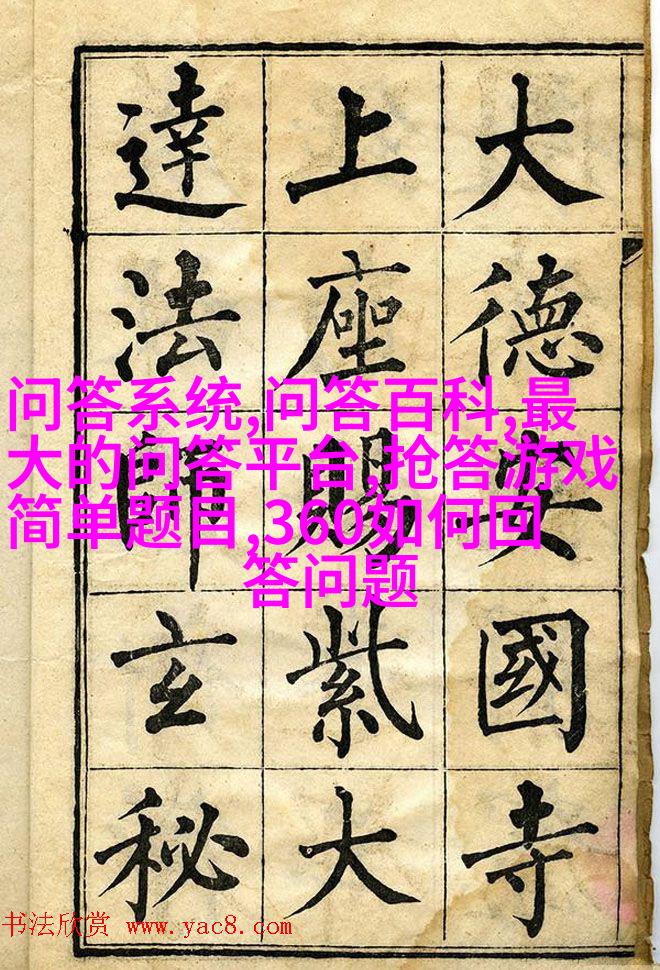 大德安國寺
上座賜紫大
達法師玄秘
问答系统,问答百科,最
大的问答平台,抢答游戏
简单题目,360如何回
答问题
书法欣赏 www.yac8.com